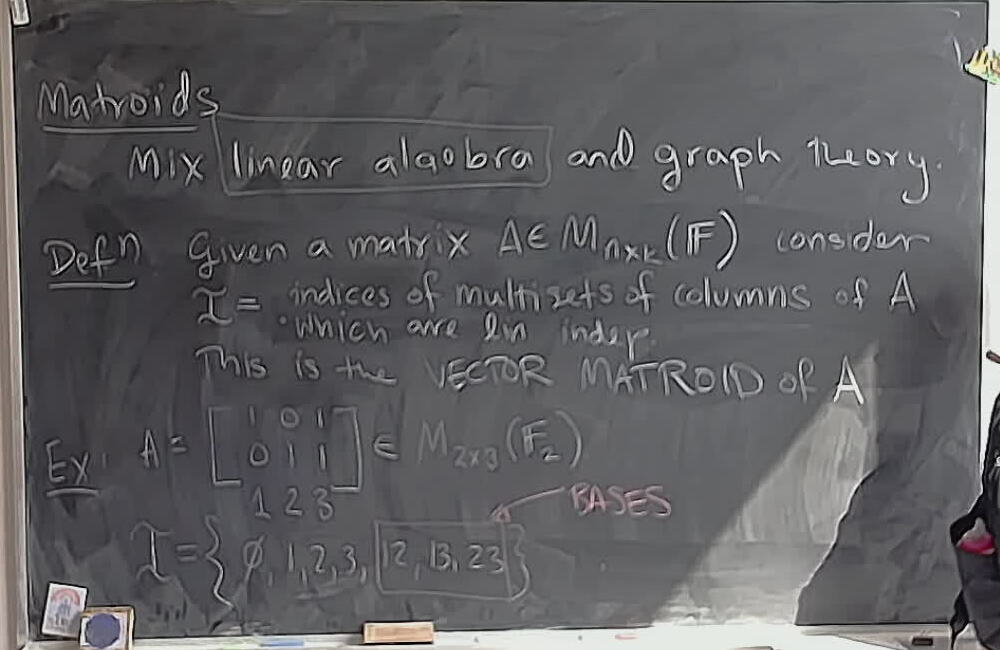 Matroids
Mix linear algobra and graph theory.
Defⁿ Given a matrix A∈M_{n×k}(𝔽) consider
I = indices of multisets of columns of A
which are lin indep.
This is the VECTOR MATROID of A
Ex: A = [ 1 0 1
0 1 1 ] ∈ M_{2×3}(𝔽_2)
1 2 3
BASES
I = { ∅, 1, 2, 3, 12, 13, 23 }